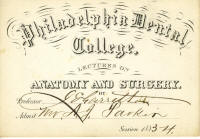 Philadelphia Dental
College.
LECTURES ON
ANATOMY AND SURGERY.
BY
Professor
Admit Mr
Session 1883-4